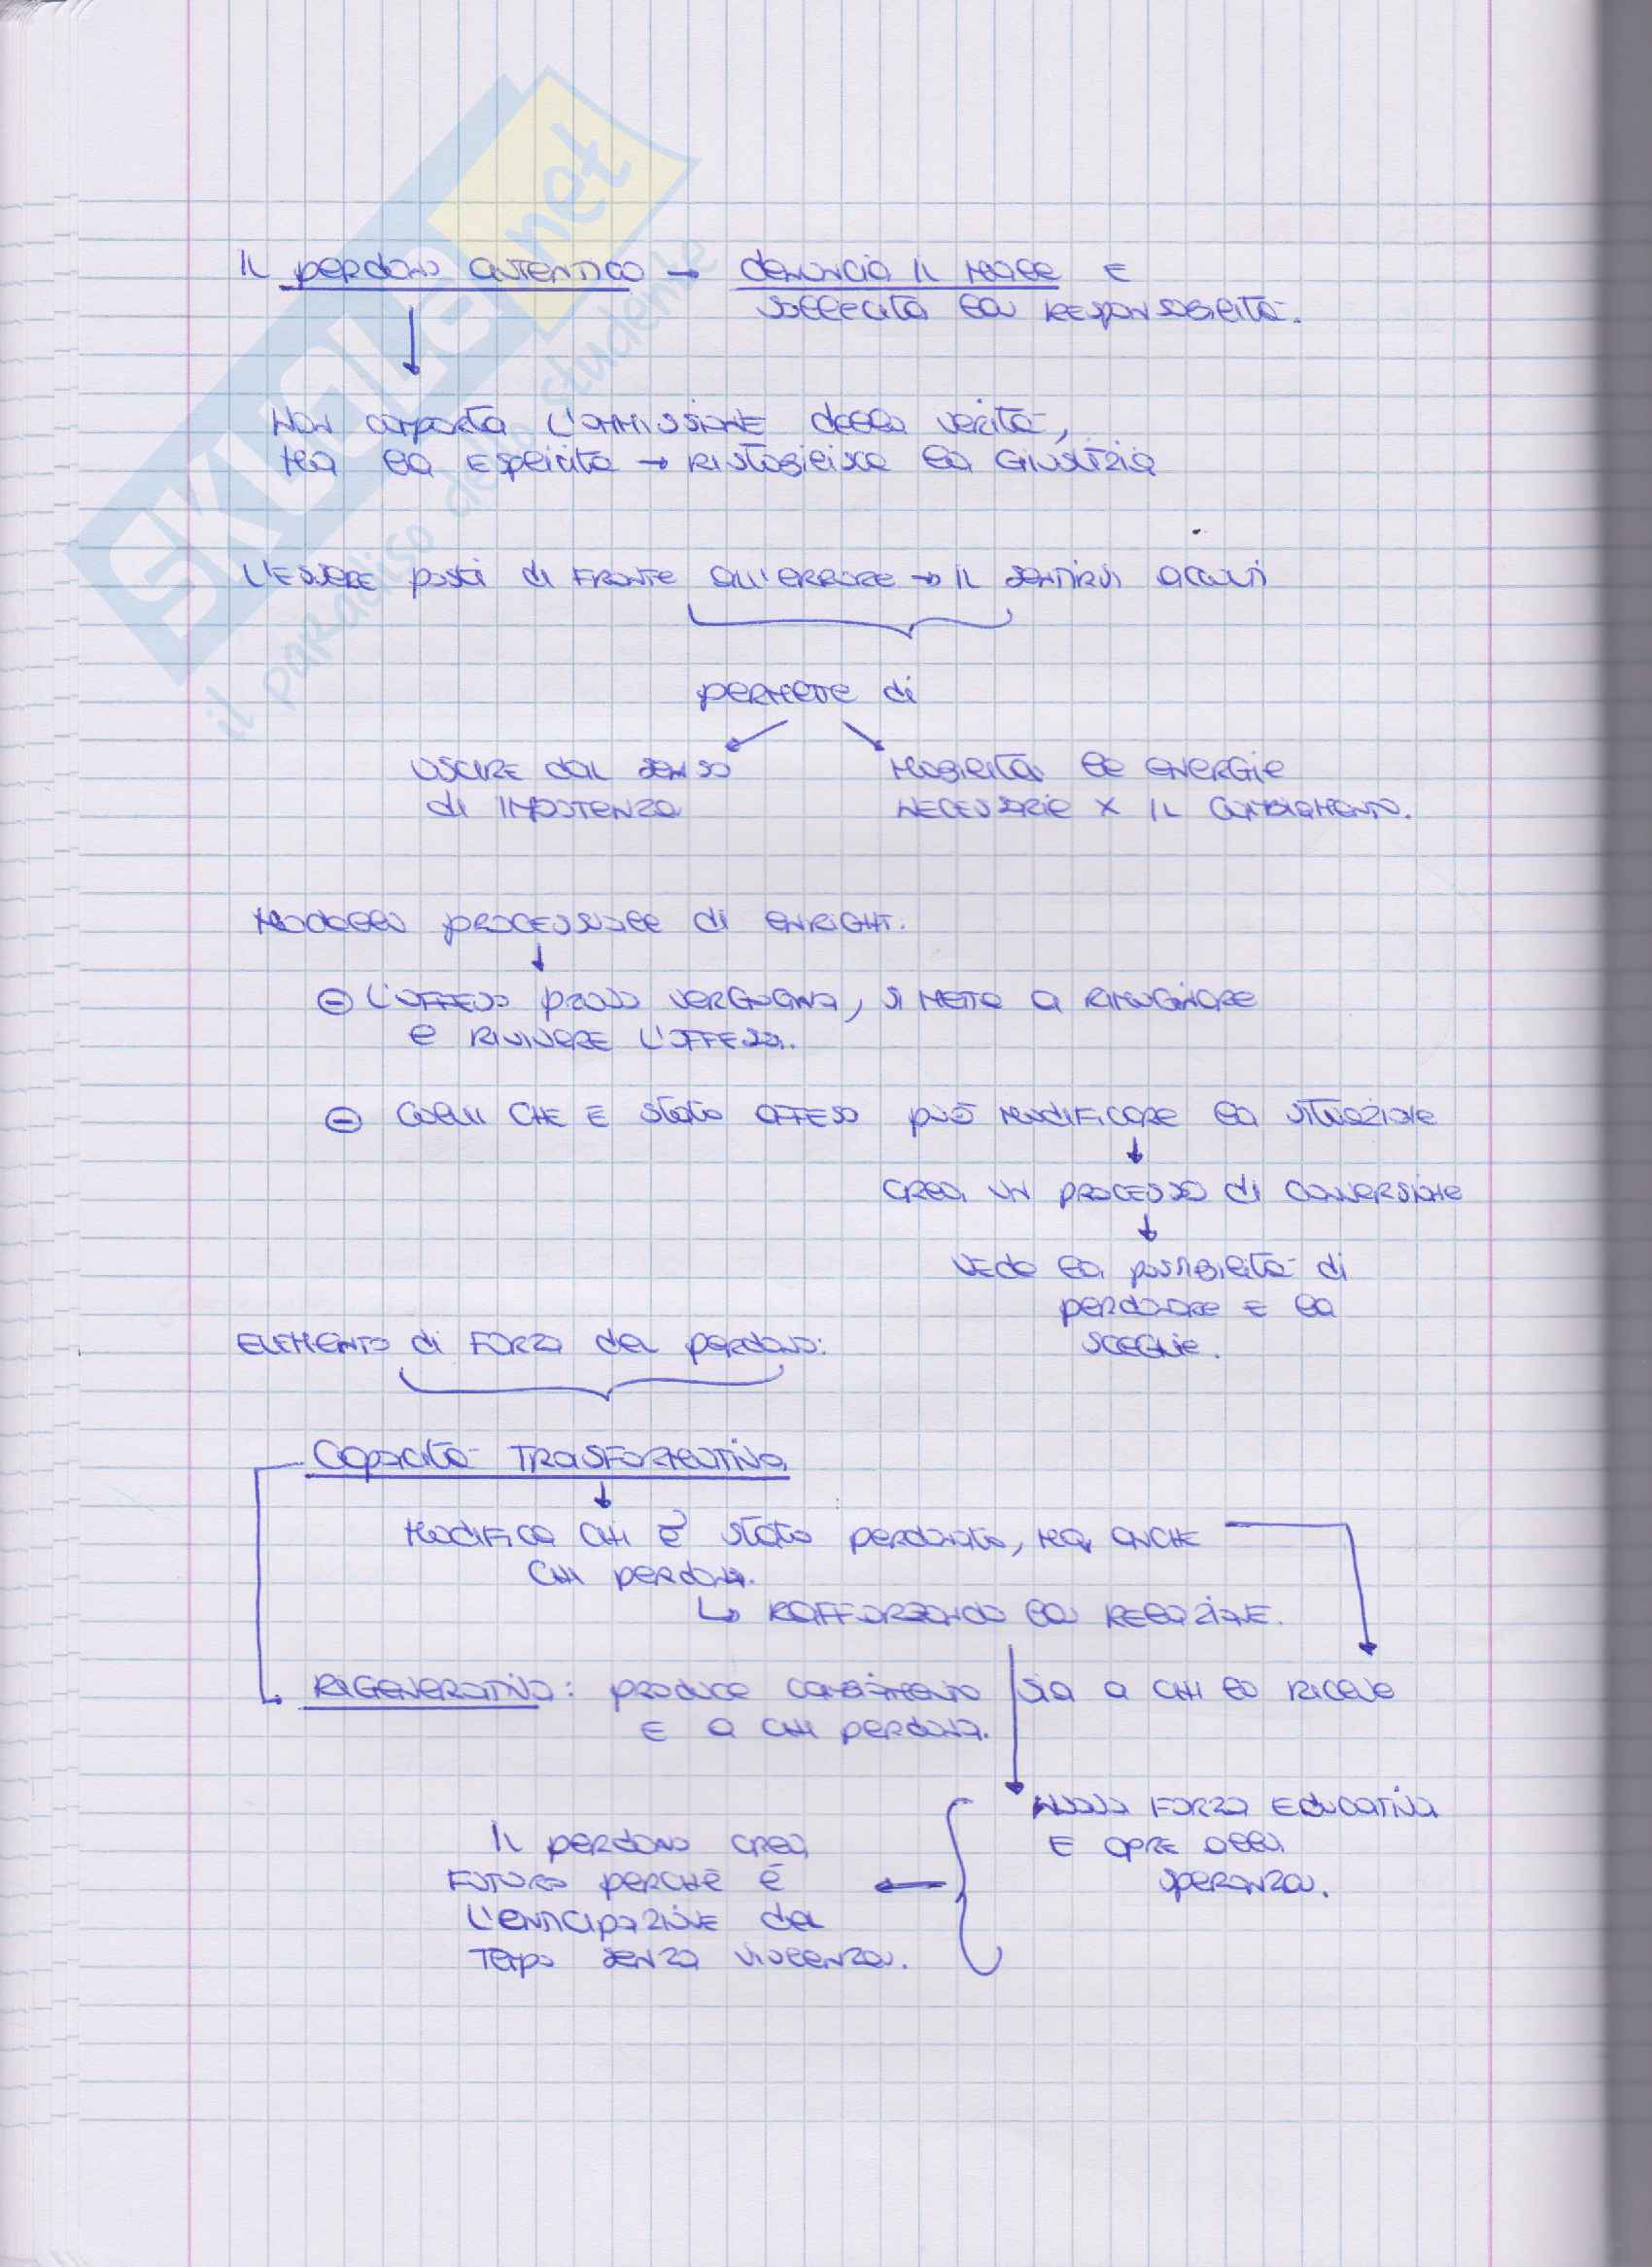 SKUOLA.net
il paradiso dello studente
IL perdono autentico → denuncia il male E
sollecita la RESPONSABILITà.
↓
NON comporta L'OMMISSIONE della verità,
MA la ESPLICITA → RISTABILISCE la GIUSTIZIA
L'ESSERE posti di FRONTE all'ERRORE → IL SENTIRSI accolti
PERMETTE di
USCIRE dal SENSO
di IMPOTENZA
MOBILITA le ENERGIE
NECESSARIE X IL CAMBIAMENTO.
MODELLO PROCESSUALE di ENRIGHT.
↓
⊖ L'OFFESO prova VERGOGNA, SI METTE a RIMUGINARE
e RIVIVERE L'OFFESA.
⊖ COLUI CHE E stato OFFESO può MODIFICARE la SITUAZIONE
↓
CREA UN PROCESSO di CONVERSIONE
↓
VEDE la possibilità di
perdonare E la
SCEGLIE.
ELEMENTO di FORZA del perdono:
Capacità TRASFORMATIVA
↓
MODIFICA CHI è stato perdonato, MA ANCHE
CHI perdona.
↳ RAFFORZANDO la RELAZIONE.
RIGENERATIVA: produce cambiamento sia a chi lo riceve
E a chi perdona.
NUOVA FORZA EDUCATIVA
E apre alla
speranza.
IL perdono crea
FUTURO perchè è
L'anticipazione del
Tempo senza violenza.